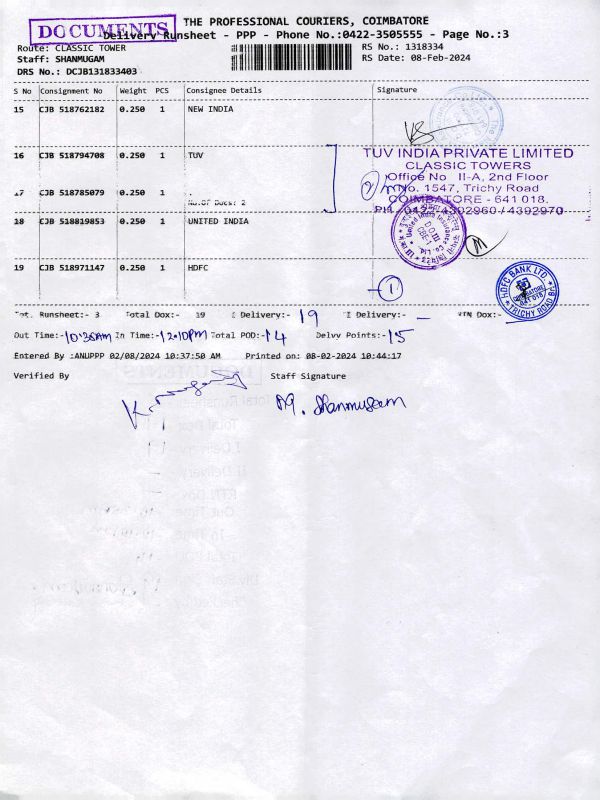 DOCUMENTS
THE PROFESSIONAL COURIERS, COIMBATORE
Delivery Runsheet - PPP - Phone No.:0422-3505555 - Page No.:3
Route: CLASSIC TOWER
RS No.: 1318334
Staff: SHANMUGAM
RS Date: 08-Feb-2024
DRS No.: DCJB131833403
S No Consignment No Weight PCS Consignee Details Signature
15 CJB 518762182 0.250 1 NEW INDIA
16 CJB 518794708 0.250 1 TUV
TUV INDIA PRIVATE LIMITED
CLASSIC TOWERS
Office No II-A, 2nd Floor
No. 1547, Trichy Road
COIMBATORE - 641 018.
PH 0422-4392960 / 4392970
17 CJB 518785079 0.250 1 .
No.Of Docs: 2
18 CJB 518819853 0.250 1 UNITED INDIA
19 CJB 518971147 0.250 1 HDFC
1
HDFC BANK LTD.
COIMBATORE
641 018
TRICHY ROAD
Tot. Runsheet:- 3 Total Dox:- 19 Delivery:- 19 Delivery:- - RTN Dox:-
Out Time:- 10:38AM In Time:- 12:10PM Total POD:- 14 Delvy Points:- 15
Entered By :ANUPPP 02/08/2024 10:37:50 AM Printed on: 08-02-2024 10:44:17
Verified By Staff Signature
M. Shanmugam